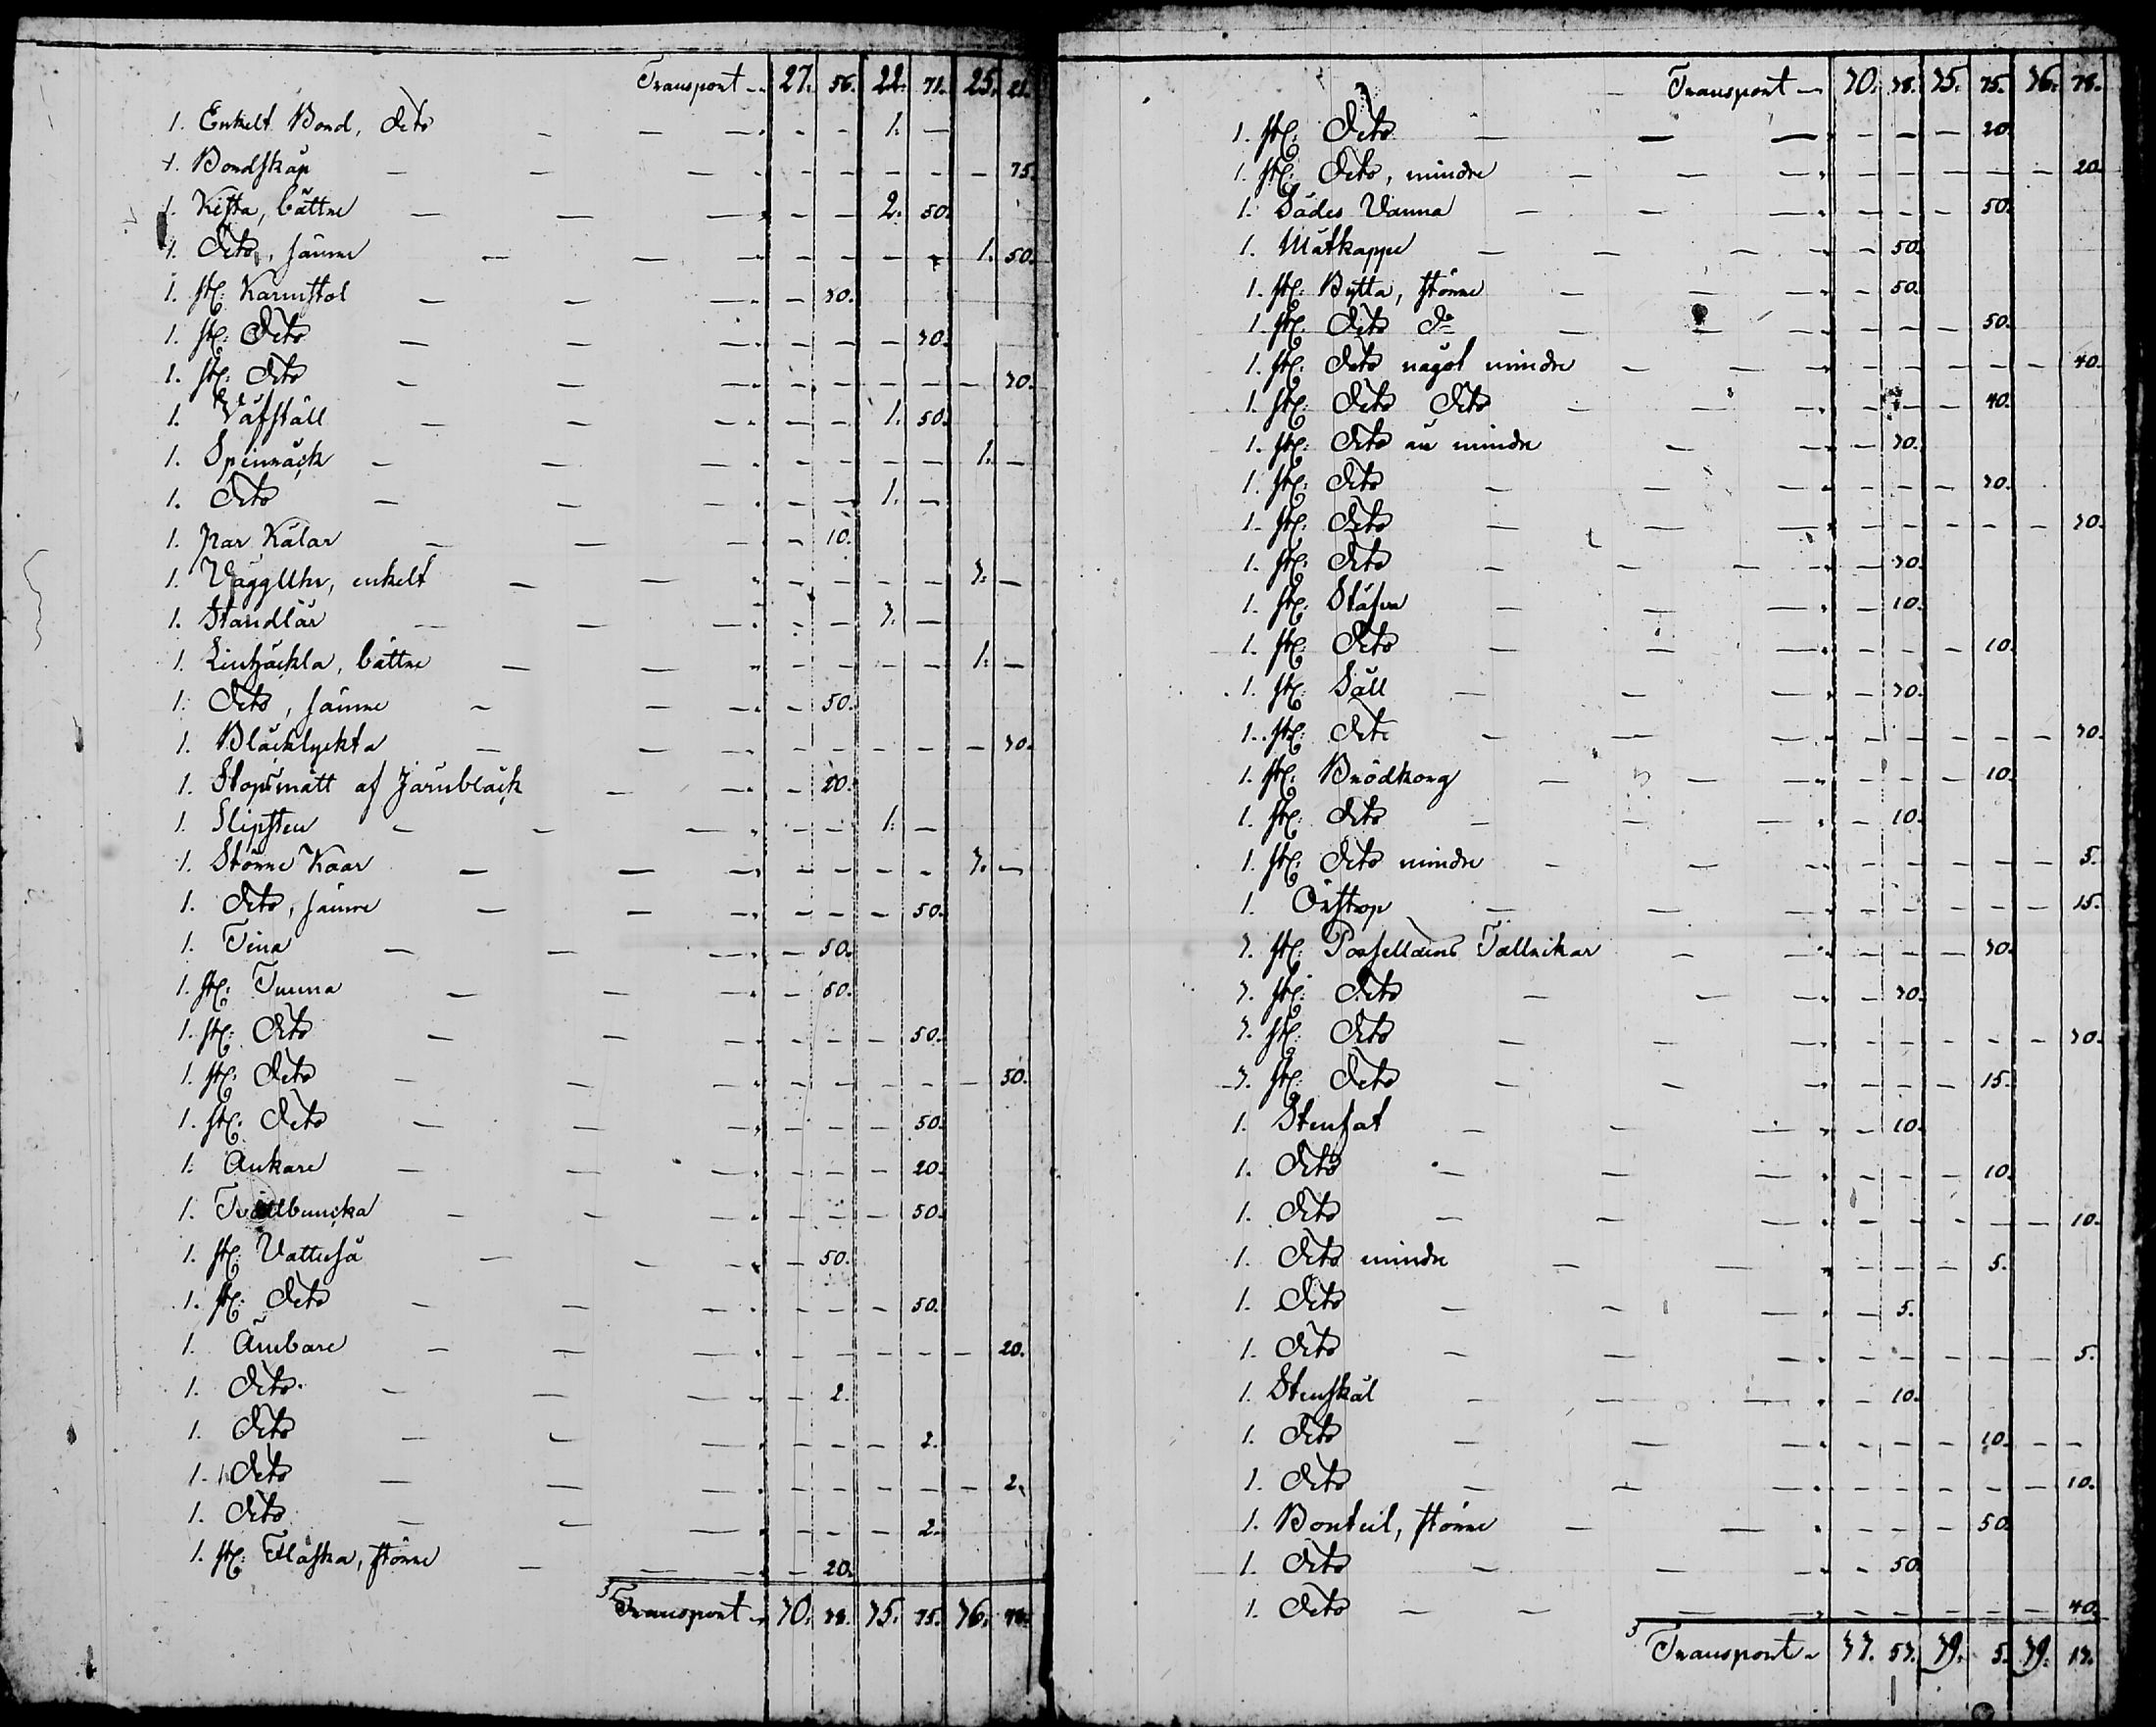 Transport - 27. 56. 22. 71. 25. 21.
1. Enkelt Bord, dito — — — - - 1. —
1. Bordskåp — — — - - - - - 75.
1. Kista, bättre — — — - - 2. 50.
1. Dito, sämre — — — - - - - 1. 50.
1. st: Karmstol — — — - 30.
1. st: Dito — — — - - - 30.
1. st: Dito — — — - - - - - 30.
1. Väfställ — — — - - 1. 50.
1. Spinnräck — — — - - - - 1. —
1. Dito — — — - - 1. —
1. par Kålar — — — - 10.
1. VäggUhr, enkelt — — - - - - 3. —
1. Standlår — — — - - 3. —
1. Linhäckla, bättre — — - - - - 1. —
1. Dito, sämre — — — - 50.
1. Bläcklyckta — — — - - - - - 30.
1. Stopsmått af Järnbläck — — - 20.
1. Slipsten — — — - - 1. —
1. Större Kaar — — — - - - - 3. —
1. Dito, sämre — — — - - - 50.
1. Tina — — — - 50.
1. st: Tunna — — — - 50.
1. st: Dito — — — - - - 50.
1. st: Dito — — — - - - - - 50.
1. st: Dito — — — - - - 50.
1. Ankare — — — - - - 20.
1. — — — - - - 50.
1. st: Vattuså — — — - 50.
1. st: Dito — — — - - - 50.
1. Ämbare — — — - - - - - 20.
1. Dito — — — - 2.
1. Dito — — — - - - 2.
1. Dito — — — - - - - - 2.
1. Dito — — — - - - 2.
1. st: Flaska, större — — — - 20.
Transport - 30. 38. 35. 75. 36. 78.
Transport - 30. 38. 35. 75. 36. 78.
1. st: Dito — — — - - - 20.
1. st: Dito, mindre — — — - - - - - 20.
1. Sädes Vanna — — — - - - 50.
1. Måtkappe — — — - 50.
1. st: Bytta, större — — — - 50.
1. st: Dito do — — — - - - 50.
1. st: Dito något mindre — — — - - - - - 40.
1. st: Dito Dito — — — - - - 40.
1. st: Dito än mindre — — - 30.
1. st: Dito — — — - - - 30.
1. st: Dito — — — - - - - - 30.
1. st: Dito — — — - 30.
1. st: Stäfva — — — - 10.
1. st: Dito — — — - - - 10.
1. st: Såll — — — - 30.
1. st: Dito — — — - - - - - 30.
1. st: Brödkorg — — — - - - 10.
1. st: Dito — — — - 10.
1. st: Dito mindre — — — - - - - - 5.
1. Örstop — — — - - - - - 15.
3. st: Tallrikar — — - - - 30.
3. st: Dito — — — - 30.
3. st: Dito — — — - - - - - 30.
3. st: Dito — — — - - - 15.
1. Stenfat — — — - 10.
1. Dito — — — - - - 10.
1. Dito — — — - - - - - 10.
1. Dito mindre — — - - - 5.
1. Dito — — — - 5.
1. Dito — — — - - - - - 5.
1. Stenskål — — — - 10.
1. Dito — — — - - - 10. - -
1. Dito — — — - - - - - 10.
1. Bouteil, större — — - - - 50.
1. Dito — — — - 50.
1. Dito — — — - - - - - 40.
Transport - 33. 53. 39. 5. 39. 13.